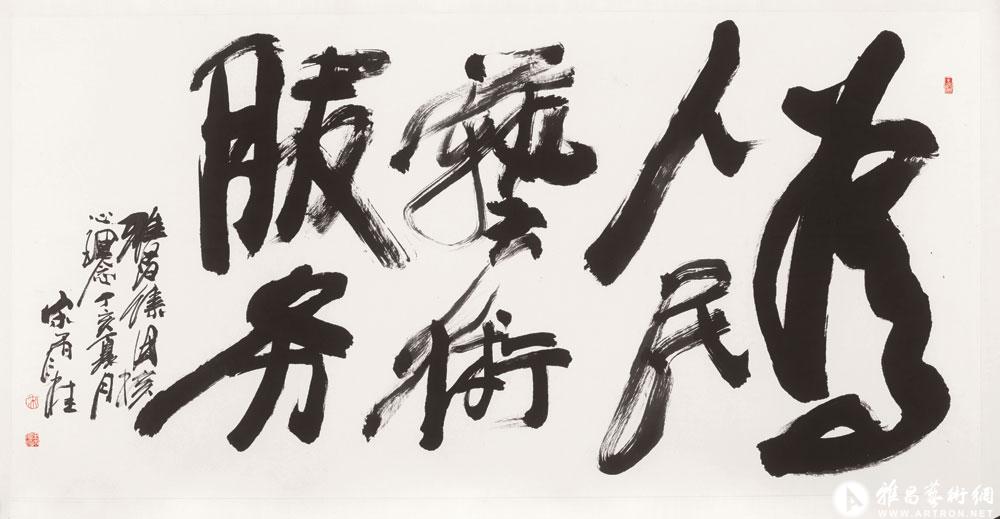 為
人民
藝術
服务
雅昌集团核
心理念丁亥夏月
宋雨桂
雅昌藝術網
WWW.ARTRON.NET